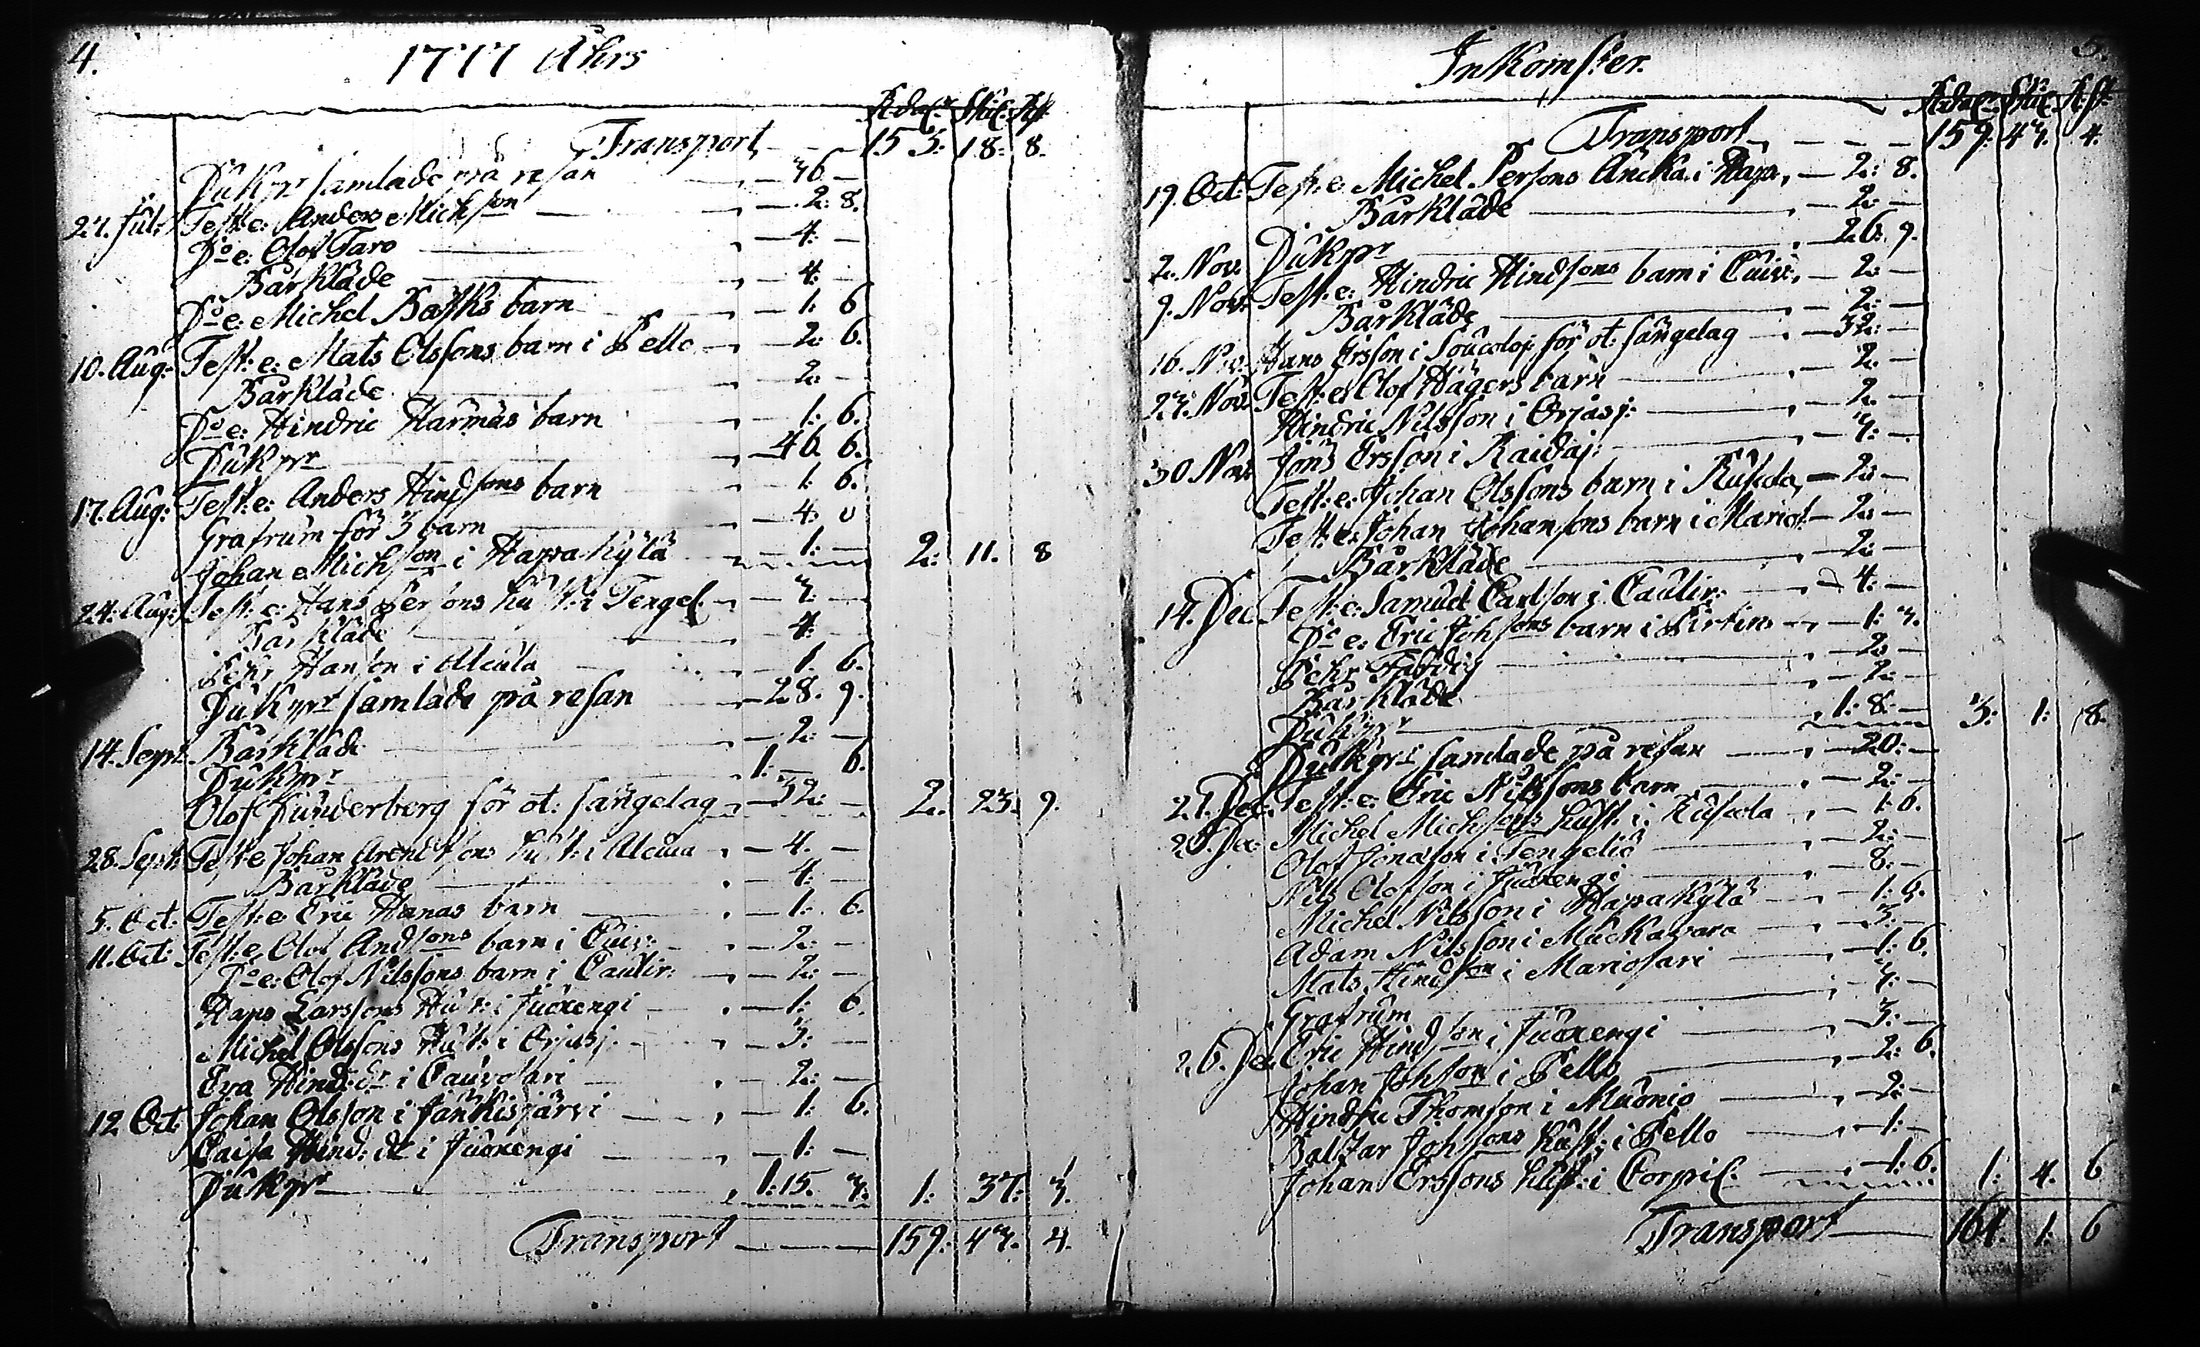 4.
1777 Åhrs
Rdal. Skil. Rst.
Transport 153. 18. 8.
Pükpr samlade på resan 36.
27. Jul: Test: e: Anders Michson 2: 8.
Do e: Olof Taro 4.
Bårkläde 4.
Do e: Michel Basks barn 1: 6
10. Aug: Test: e: Mats Olssons barn i Pello 2: 6.
Bårkläde 2:
Do e: Hindric Harmas barn 1: 6.
Pükpr 46. 6.
17. Aug: Test: e: Anders Hindsons barn 1: 6.
Grafrum för 3 barn 4: 0
Johan Michson i Hapakylä 1: 2: 11. 8
24. Aug: Test: e: Hans Persons hust: i Tengel. 3.
Bårkläde 4.
Pehr Hanson i Alcula 1: 6.
Pükpr samlade på resan 28. 9.
14. Sept. Bårkläde 2:
Pükpr 1: 6.
Olof Sunderberg för ot: sängelag 32: 2. 23. 9.
28. Sept: Test: e Johan Arendtsons hust: i Alcula 4.
Bårkläde 4:
5. Oct: Test: e: Eric Hanas barn 1: 6.
11. Oct: Test: e Olof Andsons barn i Cuiv: 2:
Do e: Olof Nilssons barn i Caulir: 2:
Hans Larssons Hust: i Juoxengi 1: 6.
Michel Olssons Hust: i Orjasj. 3:
Eva Hind: dr i Cauvosari 2:
12 Oct Johan Olsson i Jänkisjärvi 1: 6.
Caisa Hind: dr i Juoxengi 1:
Pükpr 1: 15. 3. 1: 37: 3.
Transport 159: 43. 4.
5.
Inkomster.
Rdal. Skil. Rst.
Transport 159. 43. 4.
19. Oct: Test: e: Michel Persons Äncka i Hapa, 2: 8.
Bårkläde 2:
2. Nov. Pükpr 26: 9.
9. Nov: Test: e: Hindric Hindsons barn i Cuiv: 2:
Bårkläde 2:
16. Nov: Hans Ersson i för ot: sängelag 32:
23. Nov: Test: e: Olof Hägers barn 2:
Hindric Nilsson i Orjasj: 2.
30 Nov. Jöns Ersson i Raidaj: 3:
Test: e: Johan Olssons barn i Ruskola, 2:
Test: e: Johan Johansons barn i Marios 2:
Bårkläde 2:
14. Dec Test: e: Samuel Carlson i Caulir: 4:
Do e: Eric Johsons barn i Pirtin 1: 3.
Pehr 2:
Bårkläde 2:
Pükpr 1: 8: 3: 1: 8.
Pükpr samlade på resan 20:
21. Dec. Test: e: Eric Nilssons barn 2:
Michel Michsons hust: i Ruskola 1: 6.
Olof Jonason i Tengeliö 2:
Nils Olofson i Juoxengi 8:
Michel Nilsson i Hapakylä 1: 6.
Adam Nilsson i Muckavara 3:
Mats Hindson i Mariosari 1: 6.
Grafrum 3:
26. Dec Eric Hindson i Juoxengi 3:
Johan Johson i Pello 2: 6.
Hindric Thomson i Muonio 2:
Baltzar Johsons hust: i Pello 1:
Johan Erssons hust: i Corpil: 1: 6. 1: 4. 6
Transport 164. 1: 6